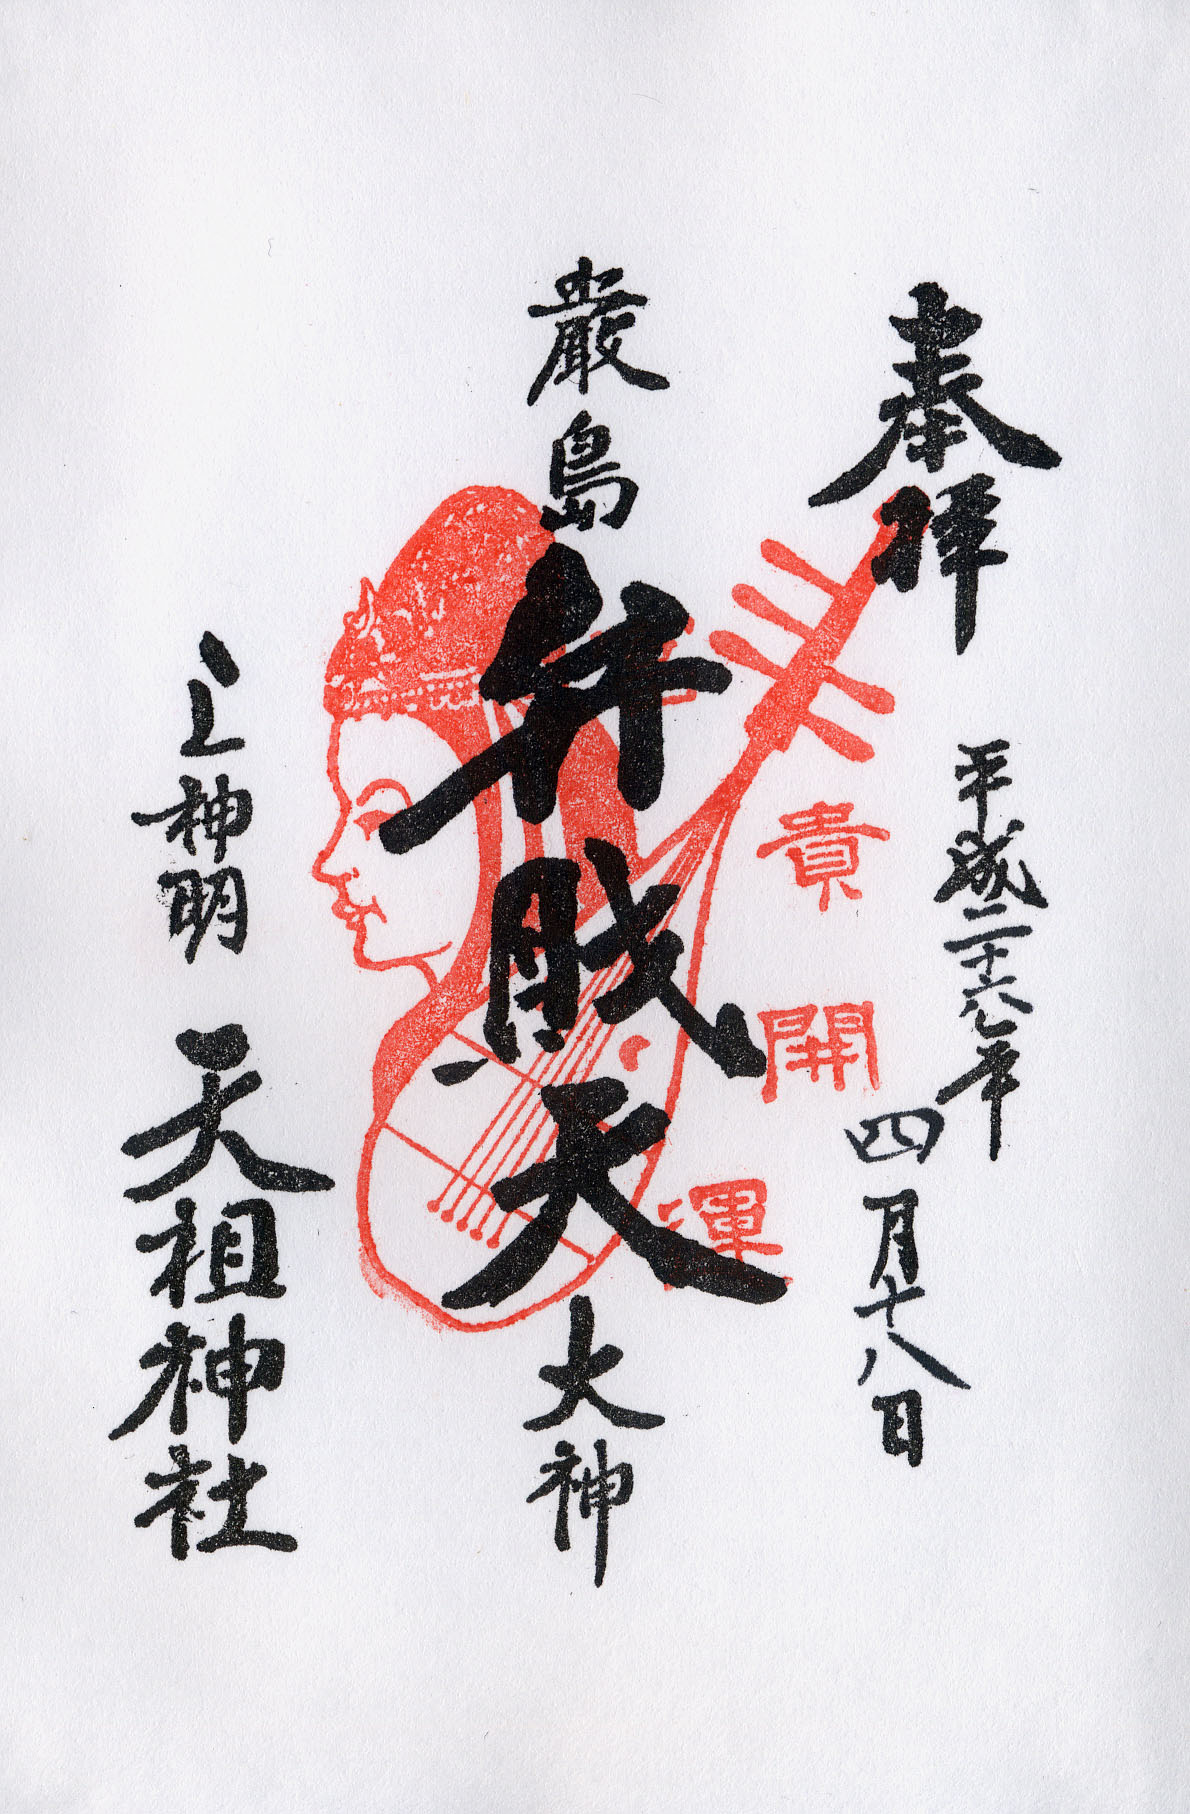 奉拝
平成二十六年
四月十八日
貴開運
厳島弁財天大神
上神明 天祖神社